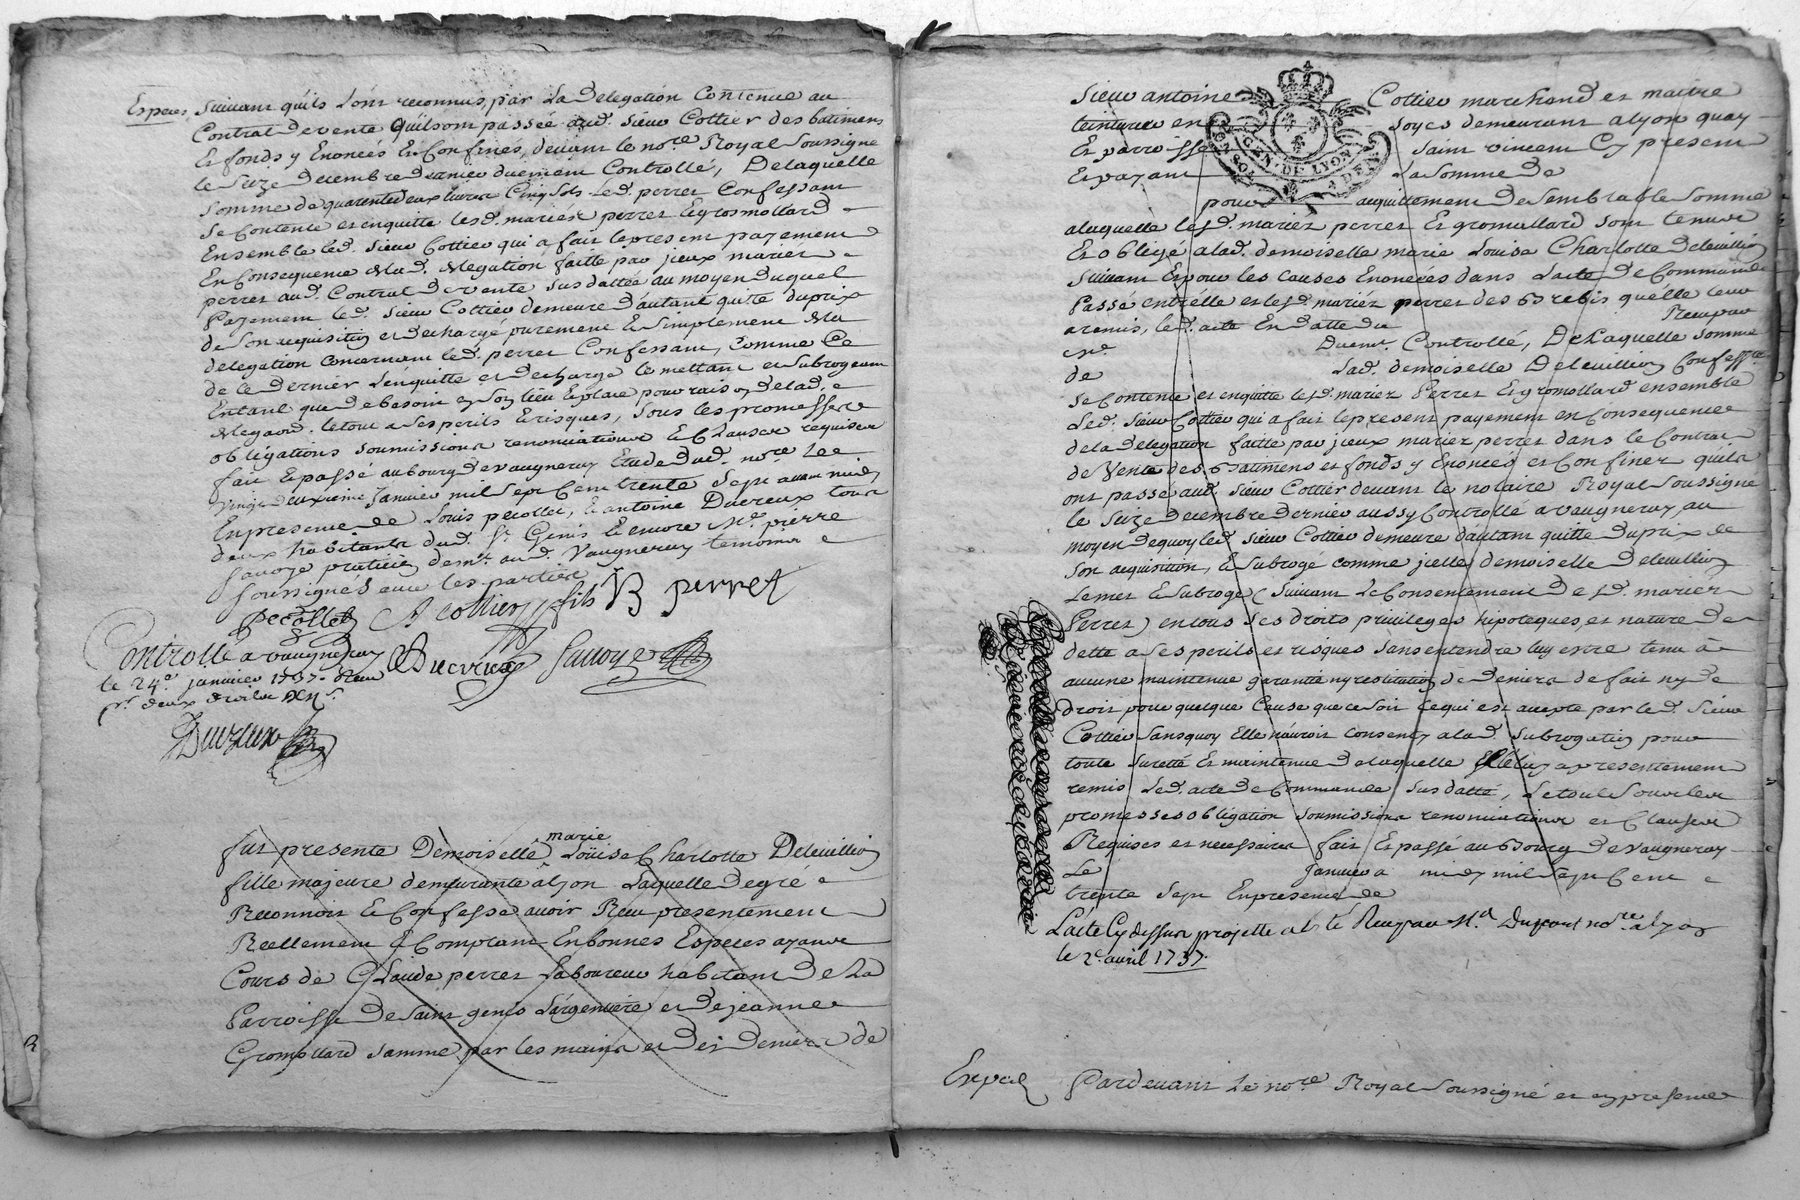 Especes suivant quils Lont reconnus par La Delegation Contenue au
Contrat de vente Quilsont passée aud. sieur Cottier des batimens
Et fonds y Enoncés Et Confinés, devant le nore Royal soussigné
le seize decembre dernier duement Controllé, De laquelle
somme de quarente deux livres Cinq sols led. perret Confessant
se Contente et enquitte lesd. mariés perret Et gromollard
Ensemble led. sieur Cottier qui a fait le present payement
En Consequence de lad. delegation faitte par jceux mariés
perret aud. Contrat de vente sus datté au moyen duquel
Payement led. sieur Cottier demeure d'autant quitte du prix
de son acquisition et dechargé purement Et simplement de la
delegation concernant led. perret Confessant, Comme Ce
de le dernier L'enquitte et decharge le mettant et subrogeant
Entant que de besoin en son lieu Et place pour raison de lad.
delegaon. le tout a ses perils Et risques, sous les promesses
obligations soumissions renonciations Et Clauses requises
fait Et passé au bourg de vaugneray Etude dud. nore Le
vingt deuxieme Janvier mil sept Cent trente sept avant midy
En presence de Louis pecollet, Et antoine Ducreux tous
deux habitants dud. St. Genis Et encore Me. pierre
savoye praticien demt. aud. Vaugneray temoins
soussignés avec les parties
Pecollet A Cottier fils B perret
Ducreux Savoye
Controllé a vaugneray
le 24e. janvier 1737. Reçu
pr. deux droits
fut presente Demoisellé marie Loüise Charlotte Deleuillion
fille majeure demeurante à lyon Laquelle de gré
Reconnoit Et Confesse avoir Reçu presentement
Reellement Et Comptant En bonnes Especes ayants
Cours de Claude perret Laboureur habitant de La
Parroisse de saint genis L'argentiere et de jeanne
Gromollard samme par les mains et des deniers de
Sieur antoine Cottier marchand et maitre
teinturier en soyes demeurant a lyon quay
Et parroisse saint vincent Cy present
Et payant La somme de
pour acquittement de semblable somme
alaquelle lesd. mariés perret Et gromollard sont tenus
Et obligé a lad. demoiselle marie Louise Charlotte deleuillion
suivant Et pour les causes Enoncées dans L'acte de Commande
Passé entrelle et lesd. mariés perret des brebis quelle leur
a remis, led. acte En datte du Reçu par
Me. Duemt. Controllé, De Laquelle somme
de Lad. demoiselle Deleuillion Confesste
se Contente et enquitte lesd. mariés Perret Et gromollard ensemble
Led. sieur Cottier qui a fait le present payement en Consequence
de la delegation faitte par jceux mariez perret dans le Contrat
de Vente des Batimens et fonds y Enoncés et Confines quils
ont passé aud. sieur Cottier devant le notaire Royal soussigné
le seize decembre dernier aussy Controllé a vaugneray au
moyen dequoy led. sieur Cottier demeure d'autant quitte du prix de
son acquisition, Et subrogé comme jcelle demoiselle deleuillion
Le met Et subroge (suivant Le Consentement desd. mariés
Perret) en tous ses droits privileges hipoteques, et nature de
dette a ses perils et risques sans entendre luy estre tenu à
aucune maintenue garantie ny restitution de deniers de fait ny de
droit pour quelque Cause que ce soit Ce qui est accepté par led. sieur
Cottier sans quoy Elle nauroit consenty a lad. subrogation pour
toute sureté Et maintenue de laquelle Elle luy a presentement
remis Led. acte de Commande sus datté, Le tout sous les
promesses obligation soumissions renonciations et Clauses
Requises et necessaires fait Et passé au Bourg de Vaugneray
Le Janvier a midy mil sept Cent
trente sept En presence de
L'acte Cy dessus projetté a été Reçu par Md. Dupont nore. a lyon
le 2e. avril 1737.
Exped. Pardevant Le nore. Royal soussigné et en presence